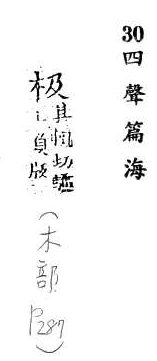 30 四聲篇海
极
其輒切驢
上負版
(木部 P287)